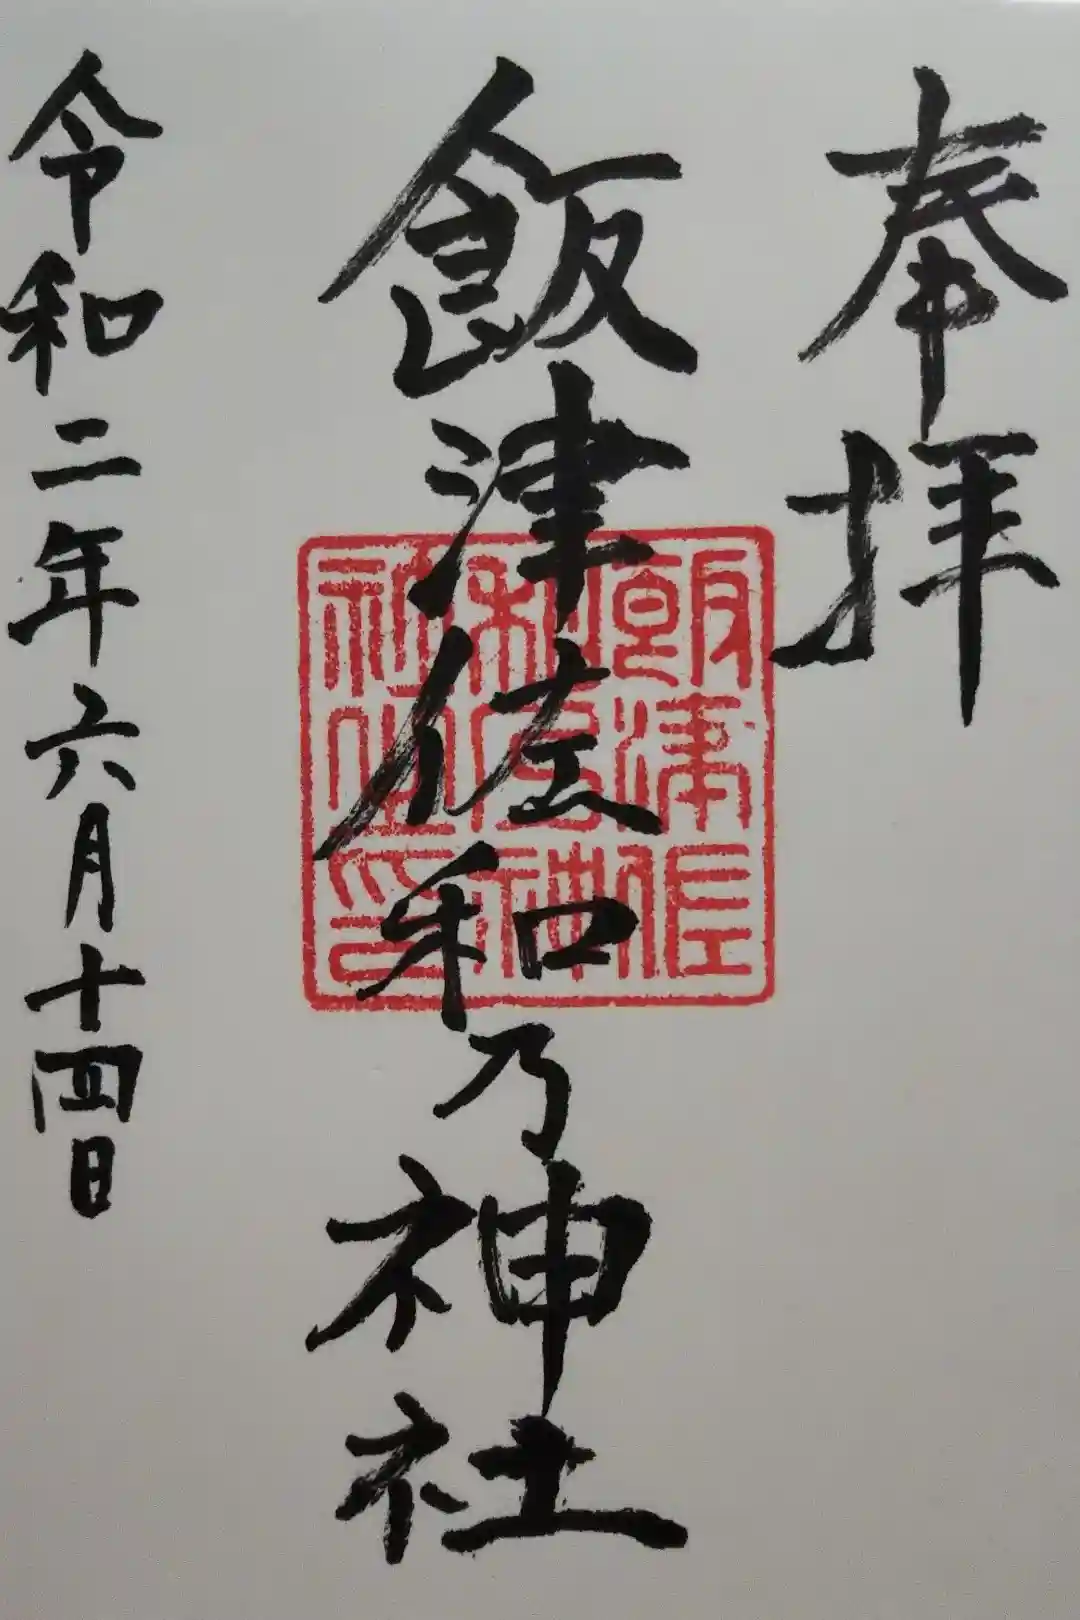 奉拝
飯津佐和乃神社
飯津佐
和乃神
社之印
令和二年六月十四日